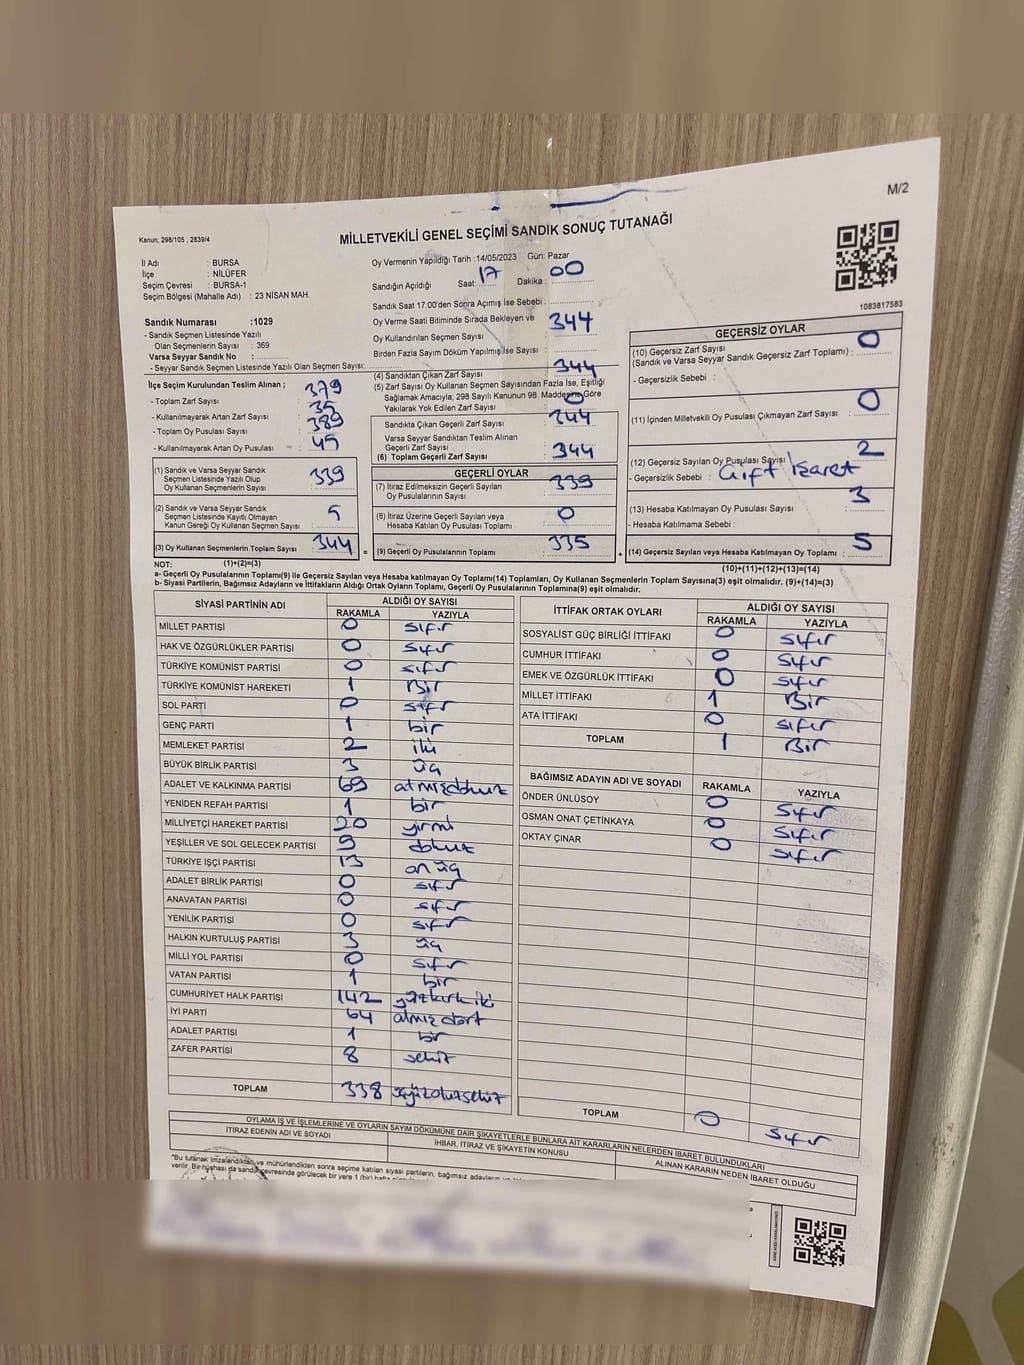 M/2
Kanun; 298/105 , 2839/4
MİLLETVEKİLİ GENEL SEÇİMİ SANDIK SONUÇ TUTANAĞI
İl Adı : BURSA
İlçe : NİLÜFER
Seçim Çevresi : BURSA-1
Seçim Bölgesi (Mahalle Adı) : 23 NİSAN MAH.
Oy Vermenin Yapıldığı Tarih : 14/05/2023 Gün: Pazar
Sandığın Açıldığı Saat: 17 Dakika : 00
Sandık Saat 17.00'den Sonra Açımış İse Sebebi :
1083817583
Sandık Numarası :1029
- Sandık Seçmen Listesinde Yazılı
Olan Seçmenlerin Sayısı : 369
Varsa Seyyar Sandık No :
- Seyyar Sandık Seçmen Listesinde Yazılı Olan Seçmen Sayısı:
Oy Verme Saati Bitiminde Sırada Bekleyen ve
Oy Kullandırılan Seçmen Sayısı : 344
Birden Fazla Sayım Döküm Yapılmış İse Sayısı :
İlçe Seçim Kurulundan Teslim Alınan ;
- Toplam Zarf Sayısı : 379
- Kullanılmayarak Artan Zarf Sayısı : 35
- Toplam Oy Pusulası Sayısı : 389
- Kullanılmayarak Artan Oy Pusulası : 45
(4) Sandıktan Çıkan Zarf Sayısı : 344
(5) Zarf Sayısı Oy Kullanan Seçmen Sayısından Fazla İse, Eşitliği
Sağlamak Amacıyla; 298 Sayılı Kanunun 98. Maddesine Göre
Yakılarak Yok Edilen Zarf Sayısı : 0
Sandıkta Çıkan Geçerli Zarf Sayısı : 344
Varsa Seyyar Sandıktan Teslim Alınan
Geçerli Zarf Sayısı :
(6) Toplam Geçerli Zarf Sayısı : 344
(1) Sandık ve Varsa Seyyar Sandık
Seçmen Listesinde Yazılı Olup
Oy Kullanan Seçmenlerin Sayısı : 339
(2) Sandık ve Varsa Seyyar Sandık
Seçmen Listesinde Kayıtlı Olmayan
Kanun Gereği Oy Kullanan Seçmen Sayısı : 5
(3) Oy Kullanan Seçmenlerin Toplam Sayısı : 344 =
GEÇERLİ OYLAR
(7) İtiraz Edilmeksizin Geçerli Sayılan
Oy Pusulalarının Sayısı : 339
(8) İtiraz Üzerine Geçerli Sayılan veya
Hesaba Katılan Oy Pusulası Toplamı : 0
(9) Geçerli Oy Pusulalarının Toplamı : 335 +
GEÇERSİZ OYLAR
(10) Geçersiz Zarf Sayısı
(Sandık ve Varsa Seyyar Sandık Geçersiz Zarf Toplamı) : 0
- Geçersizlik Sebebi :
(11) İçinden Milletvekili Oy Pusulası Çıkmayan Zarf Sayısı : 0
(12) Geçersiz Sayılan Oy Pusulası Sayısı : 2
- Geçersizlik Sebebi : Çift İşaret
(13) Hesaba Katılmayan Oy Pusulası Sayısı : 3
- Hesaba Katılmama Sebebi :
(14) Geçersiz Sayılan veya Hesaba Katılmayan Oy Toplamı : 5
NOT: (1)+(2)=(3)
(10)+(11)+(12)+(13)=(14)
a- Geçerli Oy Pusulalarının Toplamı(9) ile Geçersiz Sayılan veya Hesaba katılmayan Oy Toplamı(14) Toplamları, Oy Kullanan Seçmenlerin Toplam Sayısına(3) eşit olmalıdır. (9)+(14)=(3)
b- Siyasi Partilerin, Bağımsız Adayların ve İttifakların Aldığı Ortak Oyların Toplamı, Geçerli Oy Pusulalarının Toplamına(9) eşit olmalıdır.
SİYASİ PARTİNİN ADI ALDIĞI OY SAYISI
RAKAMLA YAZIYLA
MİLLET PARTİSİ 0 sıfır
HAK VE ÖZGÜRLÜKLER PARTİSİ 0 sıfır
TÜRKİYE KOMÜNİST PARTİSİ 0 sıfır
TÜRKİYE KOMÜNİST HAREKETİ 1 Bir
SOL PARTİ 0 sıfır
GENÇ PARTİ 1 bir
MEMLEKET PARTİSİ 2 iki
BÜYÜK BİRLİK PARTİSİ 3 üç
ADALET VE KALKINMA PARTİSİ 69 atmışdokuz
YENİDEN REFAH PARTİSİ 1 bir
MİLLİYETÇİ HAREKET PARTİSİ 20 yirmi
YEŞİLLER VE SOL GELECEK PARTİSİ 9 dokuz
TÜRKİYE İŞÇİ PARTİSİ 13 on üç
ADALET BİRLİK PARTİSİ 0 sıfır
ANAVATAN PARTİSİ 0 sıfır
YENİLİK PARTİSİ 0 sıfır
HALKIN KURTULUŞ PARTİSİ 3 üç
MİLLİ YOL PARTİSİ 0 sıfır
VATAN PARTİSİ 1 bir
CUMHURİYET HALK PARTİSİ 142 yüzkırkiki
İYİ PARTİ 64 atmışdört
ADALET PARTİSİ 1 bir
ZAFER PARTİSİ 8 sekiz
TOPLAM 338 üçyüzotuzsekiz
İTTİFAK ORTAK OYLARI ALDIĞI OY SAYISI
RAKAMLA YAZIYLA
SOSYALİST GÜÇ BİRLİĞİ İTTİFAKI 0 sıfır
CUMHUR İTTİFAKI 0 sıfır
EMEK VE ÖZGÜRLÜK İTTİFAKI 0 sıfır
MİLLET İTTİFAKI 1 Bir
ATA İTTİFAKI 0 sıfır
TOPLAM 1 Bir
BAĞIMSIZ ADAYIN ADI VE SOYADI RAKAMLA YAZIYLA
ÖNDER ÜNLÜSOY 0 sıfır
OSMAN ONAT ÇETİNKAYA 0 sıfır
OKTAY ÇINAR 0 sıfır
TOPLAM 0 sıfır
OYLAMA İŞ VE İŞLEMLERİNE VE OYLARIN SAYIM DÖKÜMÜNE DAİR ŞİKAYETLERLE BUNLARA AİT KARARLARIN NELERDEN İBARET BULUNDUKLARI
İTİRAZ EDENİN ADI VE SOYADI İHBAR, İTİRAZ VE ŞİKAYETİN KONUSU ALINAN KARARIN NEDEN İBARET OLDUĞU
"Bu tutanak imzalandıktan ve mühürlendikten sonra seçime katılan siyasi partilerin, bağımsız adayların
verilir. Bir nüshası da sandık çevresinde görülecek bir yere 1 (bir) hafta